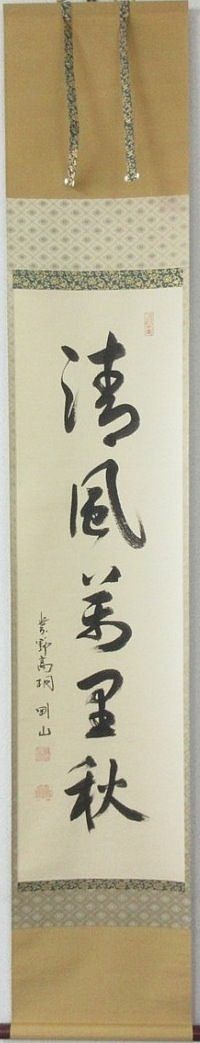 清風萬里秋
紫野高桐 剛山